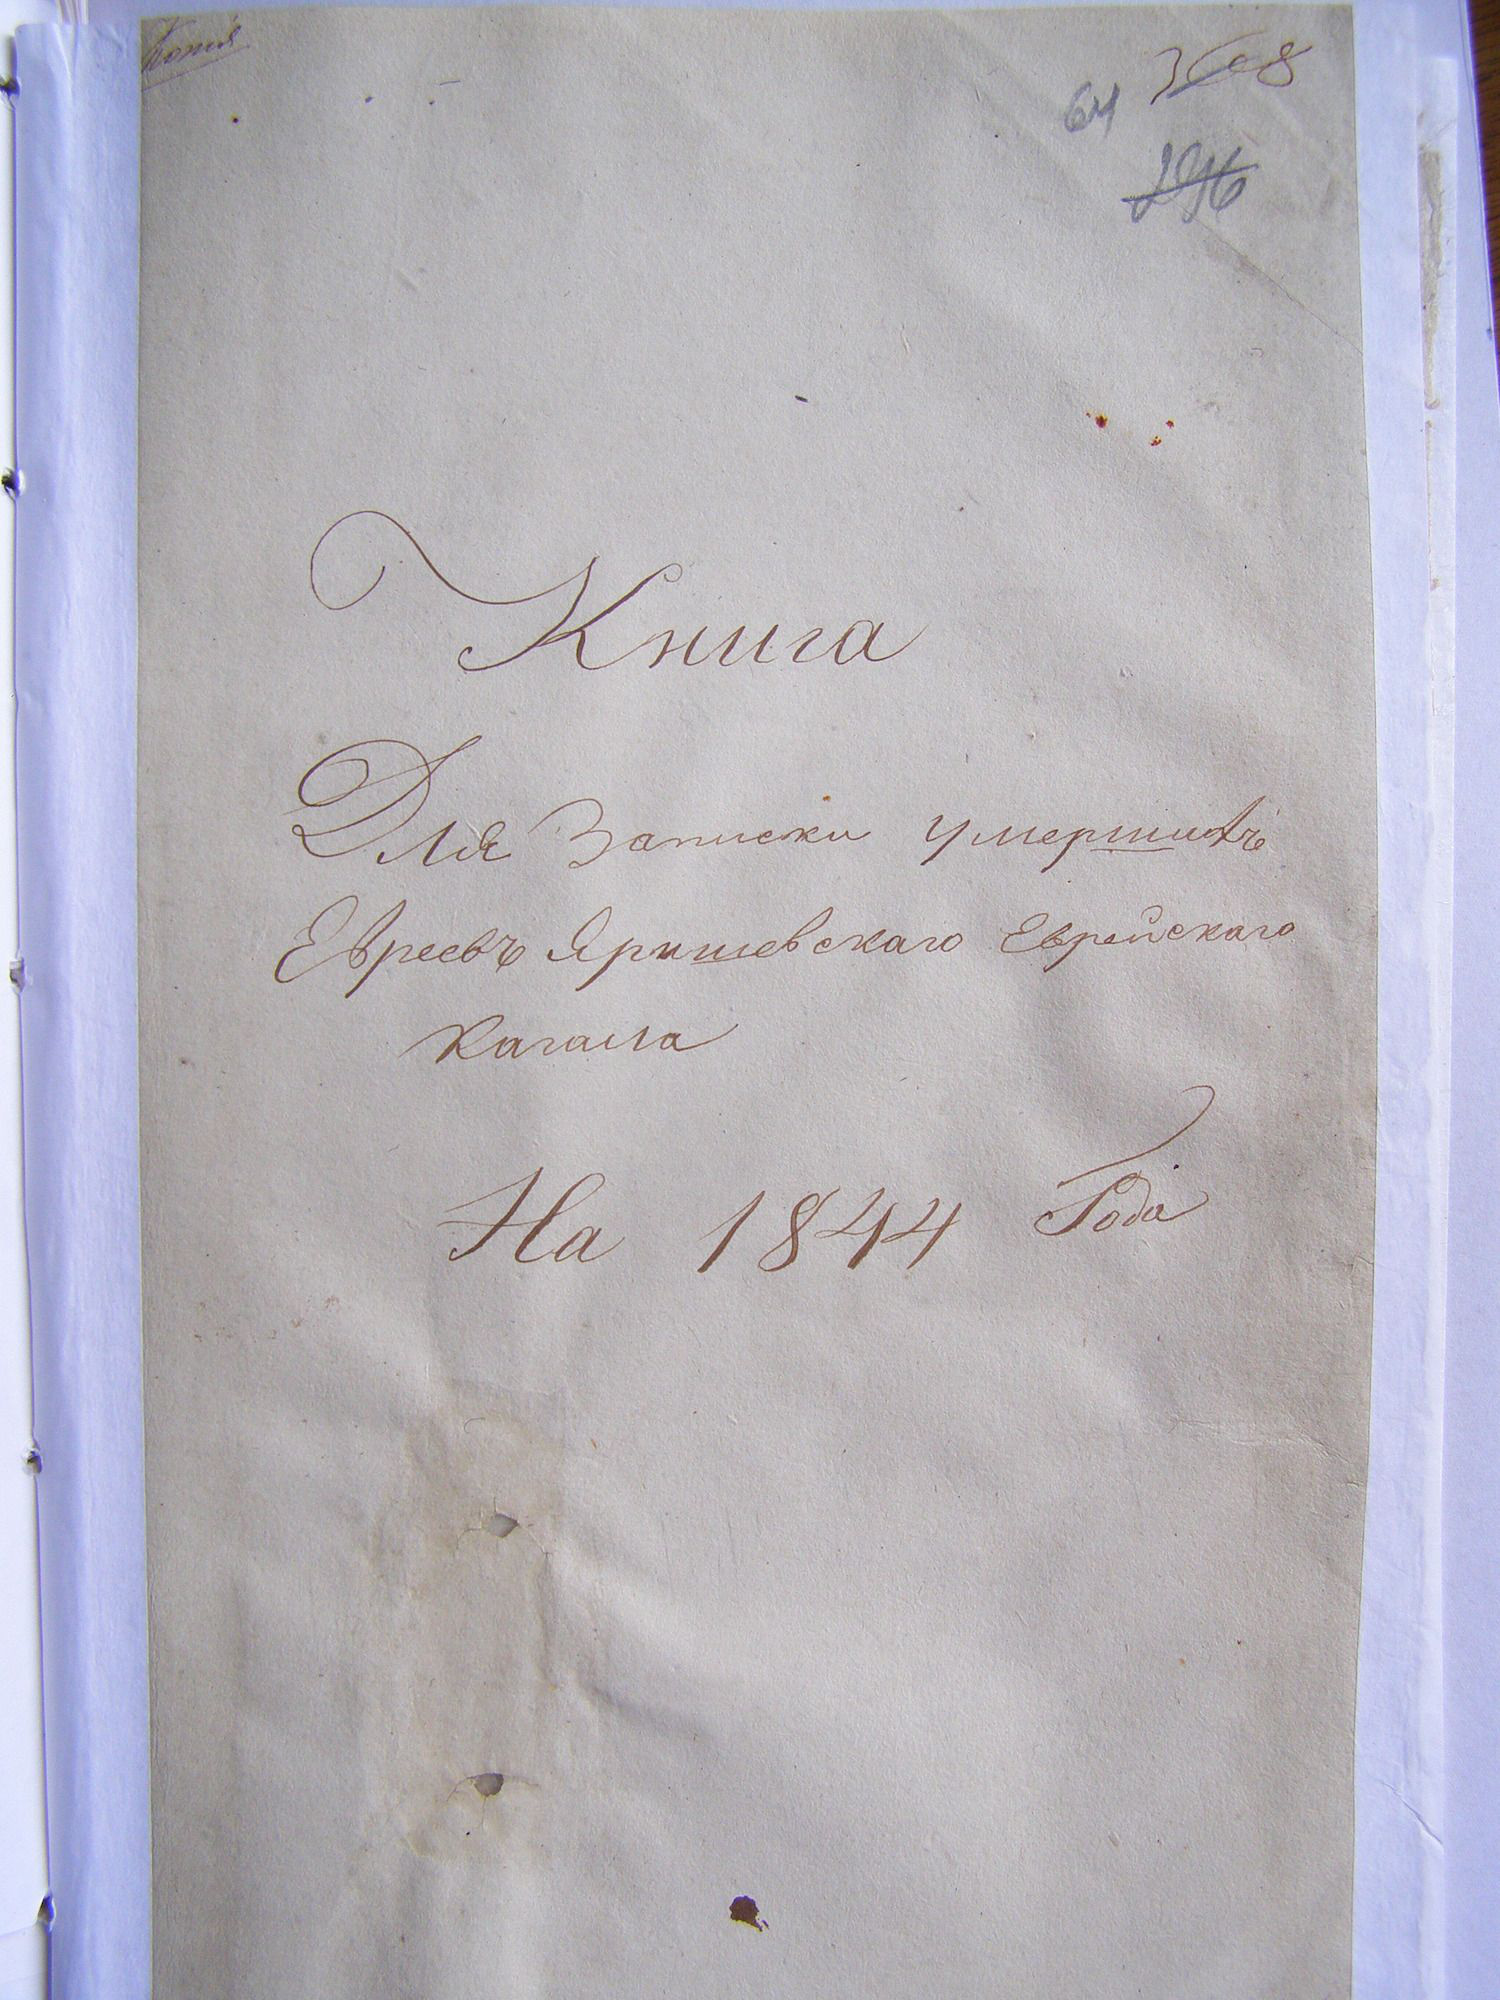 Копія
64 3608
296
Книга
Для Записки умершихъ
Евреевъ Яришевскаго Еврейскаго
Кагала
На 1844 Года